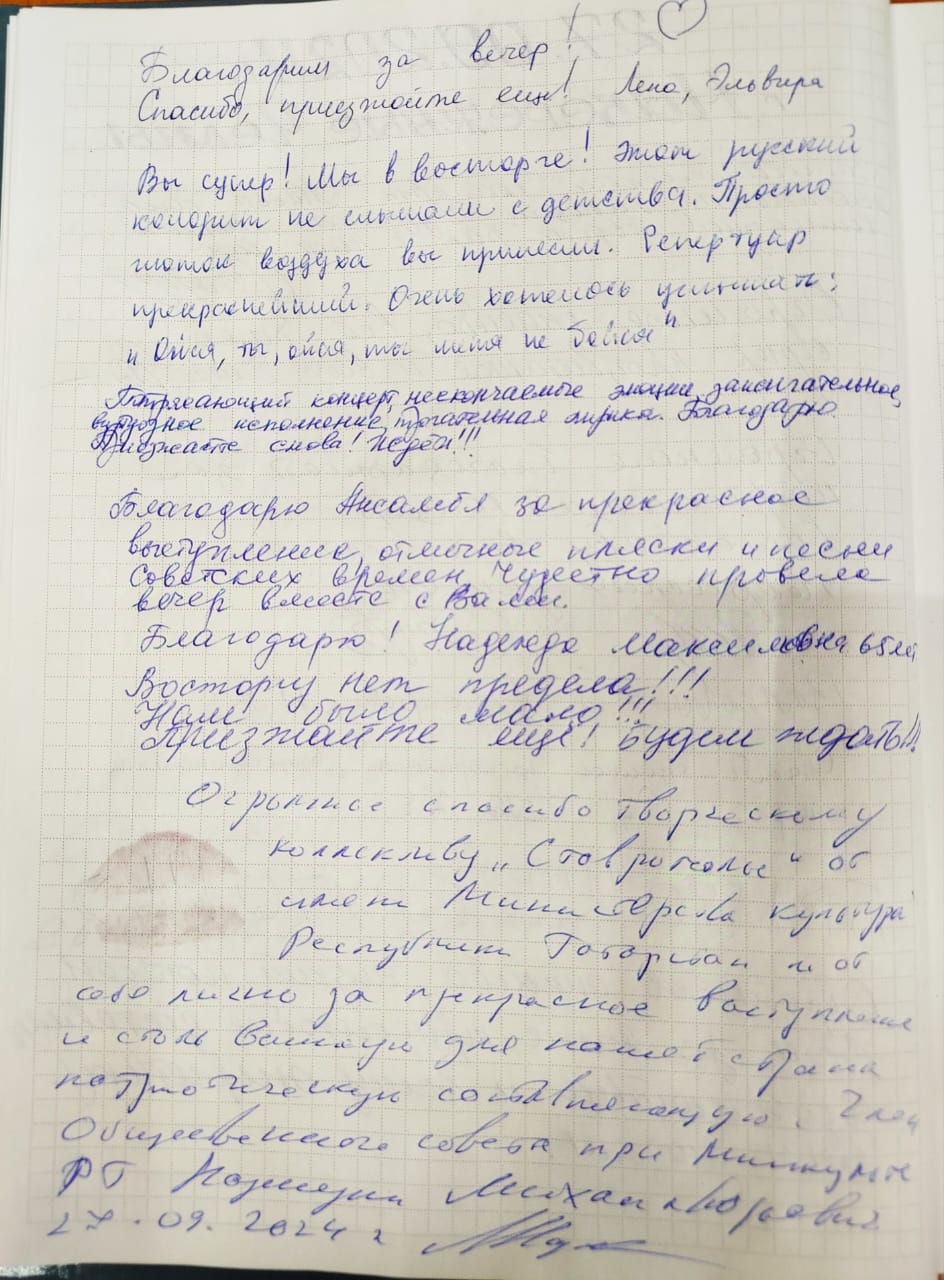 Благодарим за вечер!
Спасибо, приезжайте ещё! Лена, Эльвира
Вы супер! Мы в восторге! Этот русский
колорит не слышали с детства. Просто
глоток воздуха вы принесли. Репертуар
прекраснейший. Очень хотелось услышать:
"Ойся, ты, ойся, ты меня не бойся"
Потрясающий концерт, нескончаемые эмоции, зажигательное,
виртуозное исполнение, трогательная лирика. Благодарю
Приезжайте снова! Ждём!!!
Благодарю Ансамбль за прекрасное
выступление, отличные пляски и песни
Советских времен. Чудестно провела
вечер вместе с Вами.
Благодарю! Надежда Максимовна 65 лет
Восторгу нет предела!!!
Нам было мало!!!
Приезжайте ещё! Будем ждать!!!
Огромное спасибо творческому
коллективу „Ставрополье" от
имени Министерства культуры
Республики Татарстан и от
себя лично за прекрасное выступление
и столь важную для нашей страны
патриотическую составляющую. Член
Общественного совета при Минкульте
РТ Михаил Юрьевич
27.09.2024 г